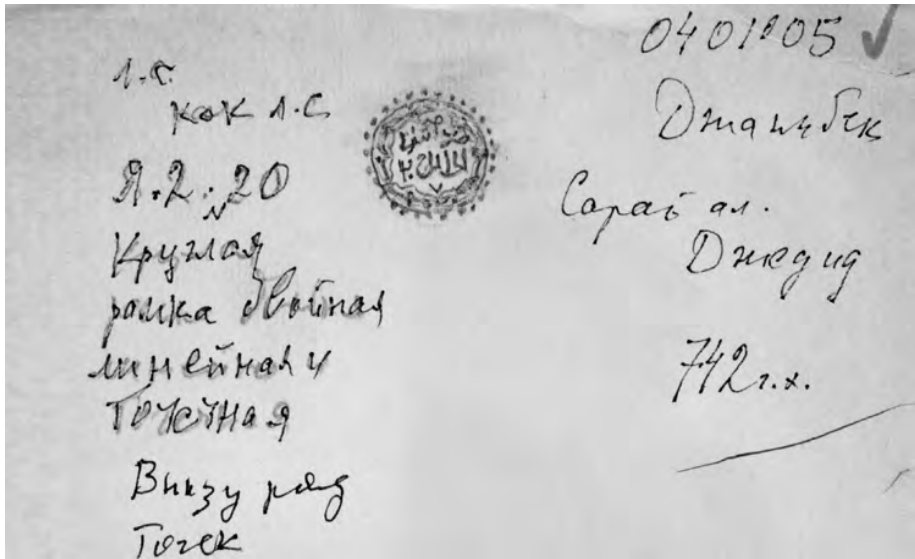 л.с.
как л.с
Я.2.20
Круглая
рамка двойная
линейная и
точечная
Внизу ряд
Точек
0401805
Джанибек
Сарай ал.
Джедид
742 г.х.